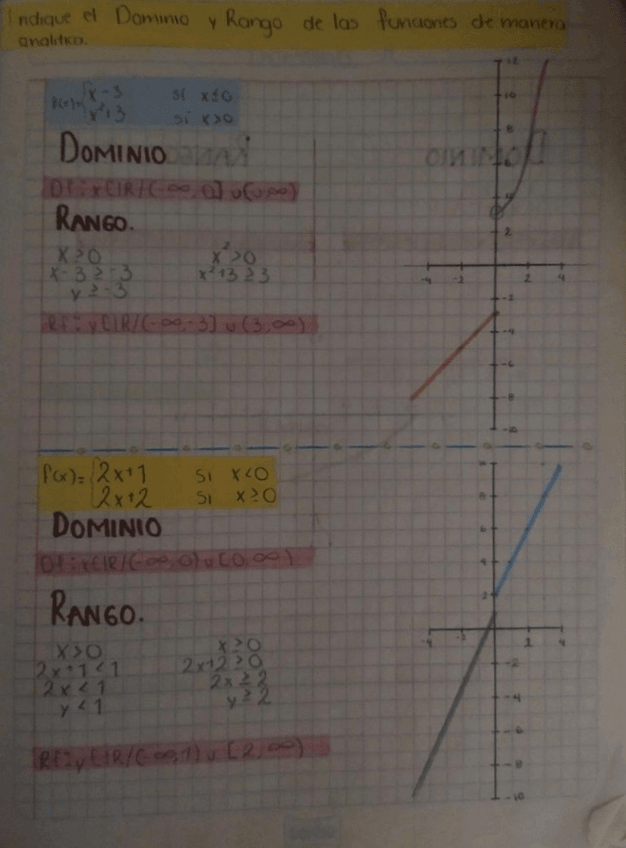 Indique el Dominio y Rango de las funciones de manera
analitica.
f(x)= { x-3 si x≤0
x²+3 si x>0
DOMINIO
Df: x∈IR/(-∞,0] ∪ (0,∞)
RANGO.
x≥0 x²>0
x-3≥-3 x²+3≥3
y≥-3
Rf: y∈IR/(-∞,-3] ∪ (3,∞)
12
10
8
6
4
2
-4 -2 2 4
-2
-4
-6
-8
-10
f(x)= { 2x+1 si x<0
2x+2 si x≥0
DOMINIO
Df: x∈IR/(-∞,0) ∪ [0,∞)
RANGO.
x>0 x≥0
2x+1<1 2x+2≥0
2x<1 2x≥2
y<1 y≥2
Rf: y∈IR/(-∞,1) ∪ [2,∞)
8
6
4
2
-4 -2 2 4
-2
-4
-6
-8
-10